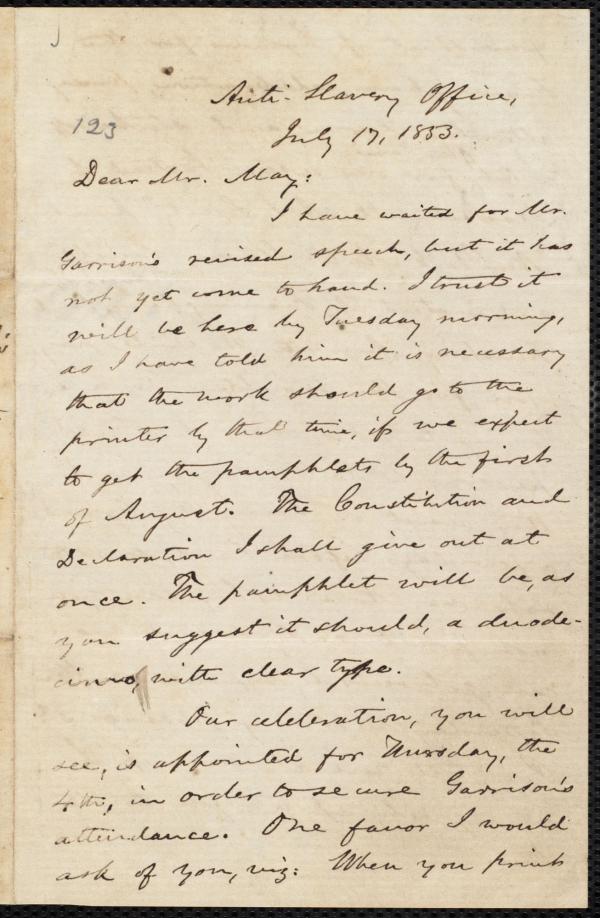 Anti-Slavery Office,
123
July 17, 1853.
Dear Mr. May:
I have waited for Mr.
Garrison's revised speech, but it has
not yet come to hand. I trust it
will be here by Tuesday morning,
as I have told him it is necessary
that the work should go to the
printer by that time, if we expect
to get the pamphlets by the first
of August. The Constitution and
Declaration I shall give out at
once. The pamphlet will be, as
you suggest it should, a duode-
cimo, with clear type.
Our celebration, you will
see, is appointed for Thursday, the
4th, in order to secure Garrison's
attendance. One favor I would
ask of you, viz: When you print